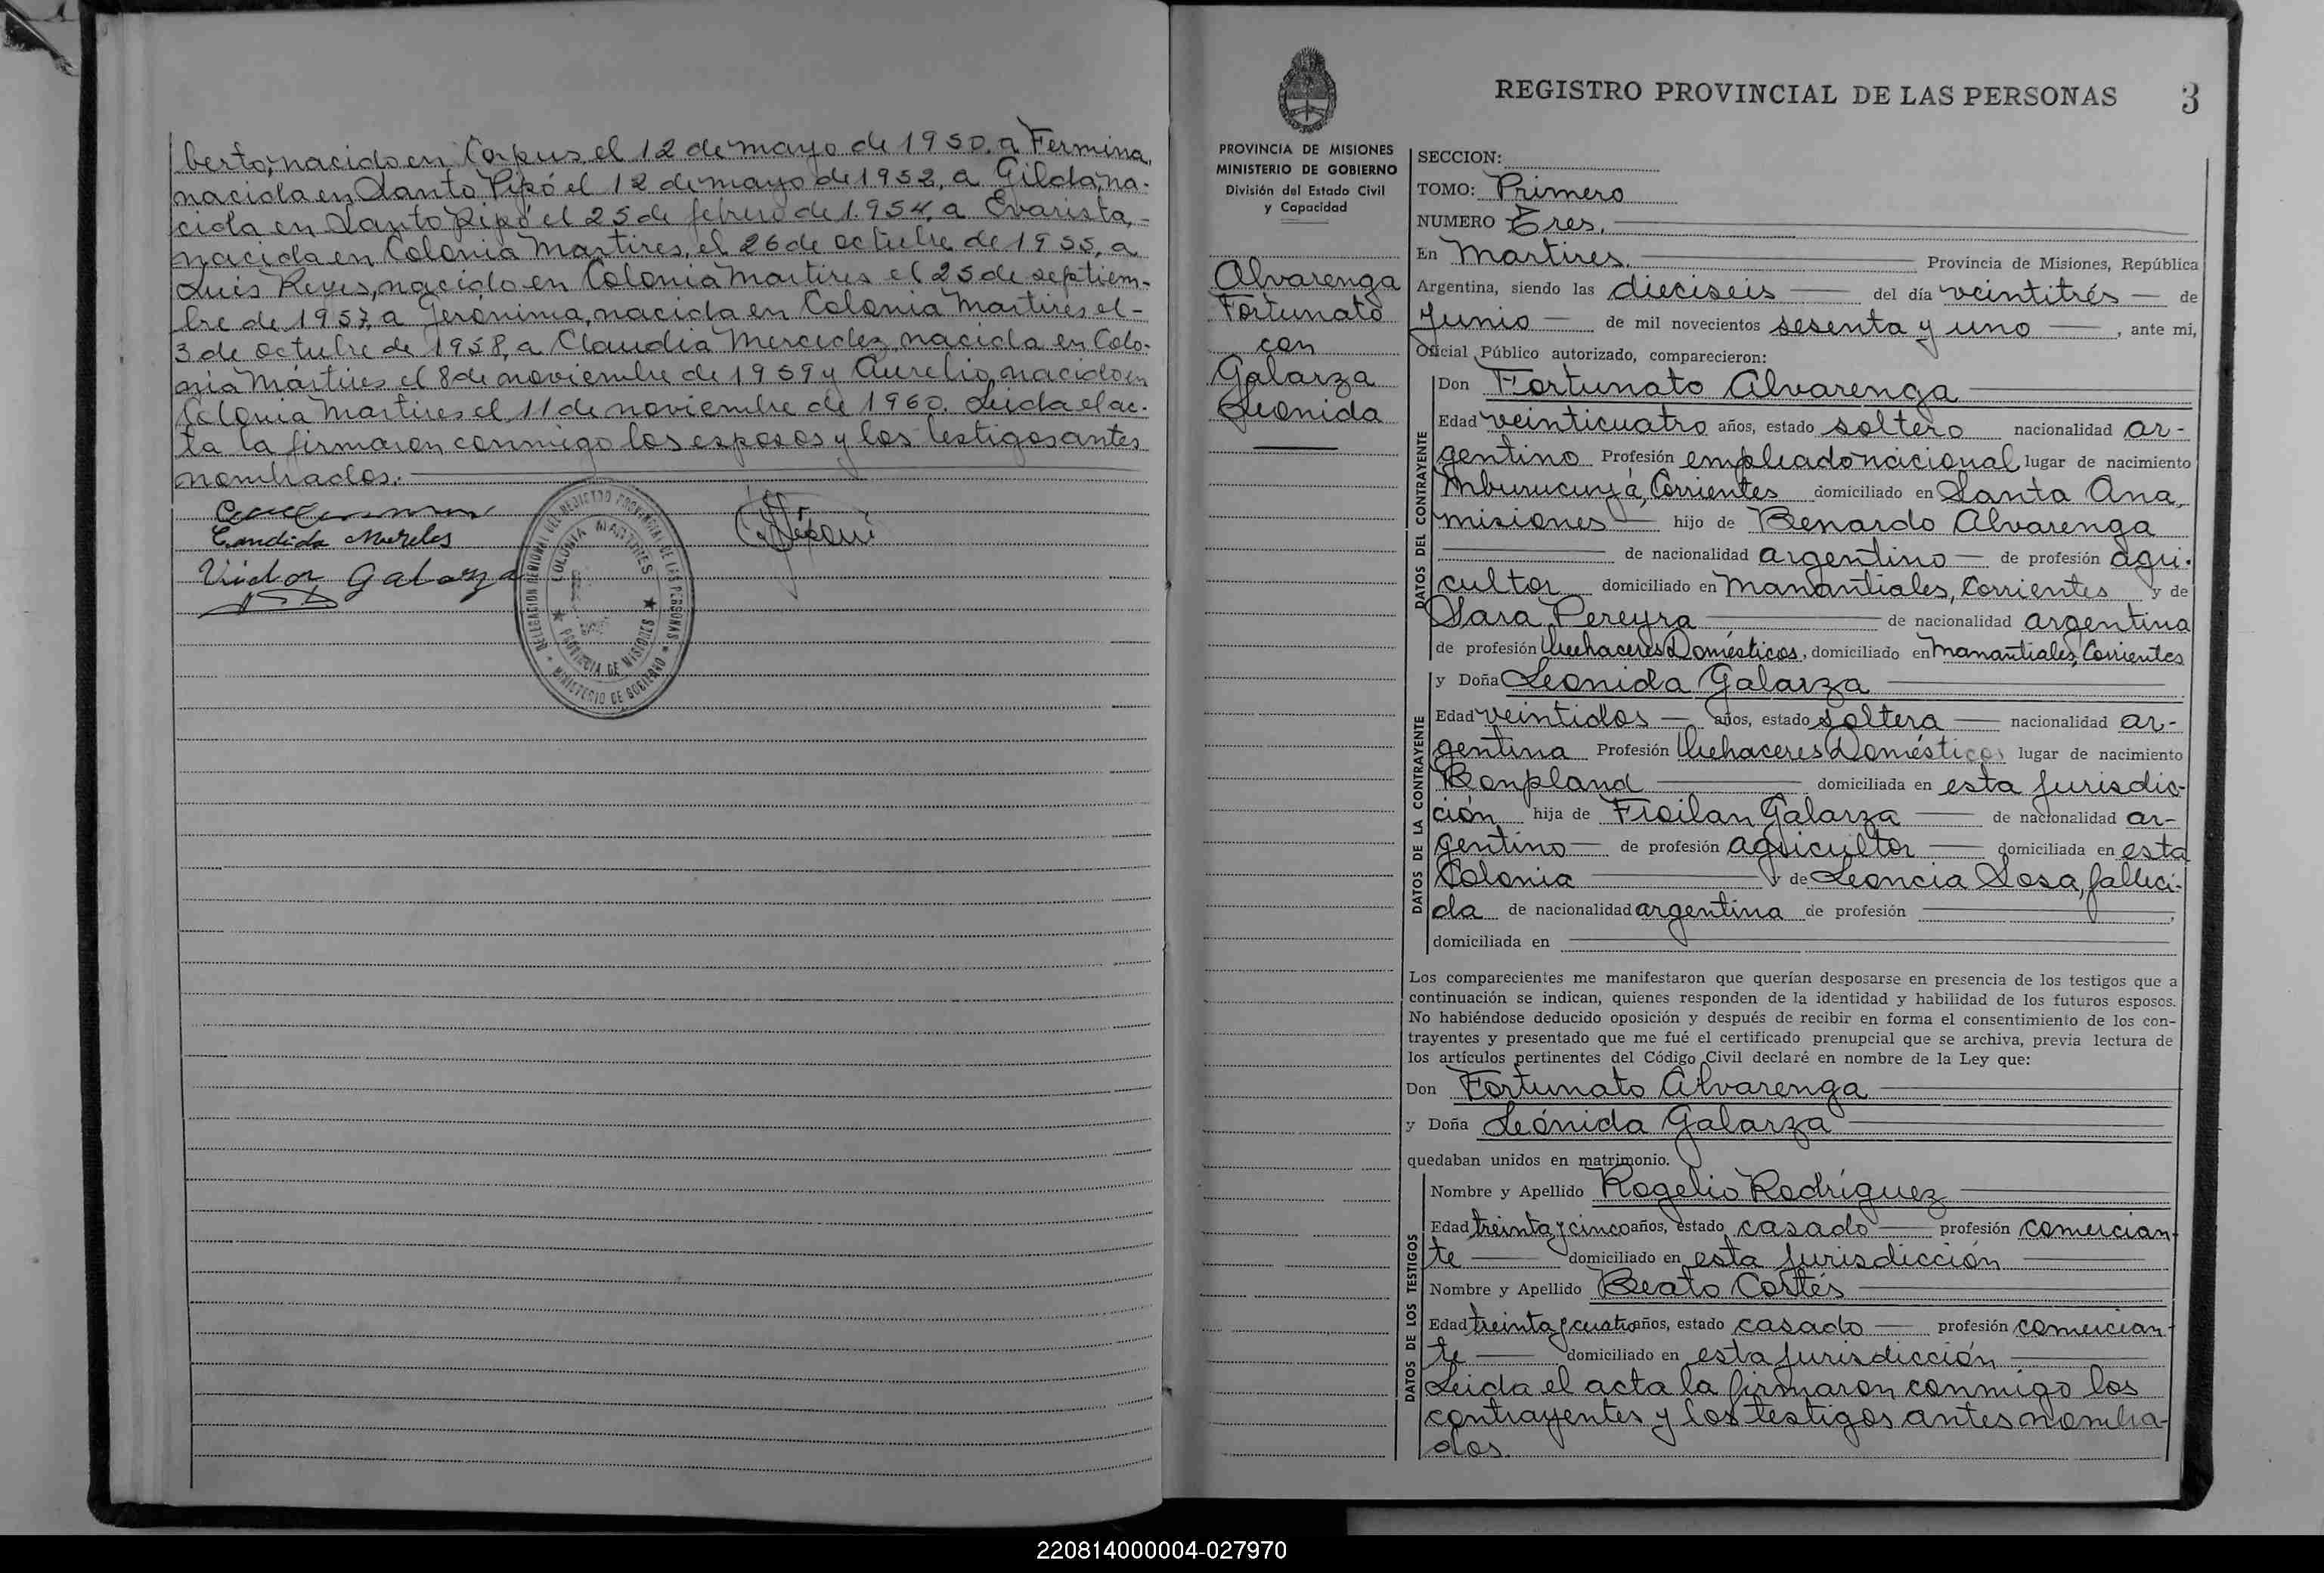 berto, nacido en Corpus el 12 de mayo de 1950. a Fermina,
nacida en Santo Pipó el 12 de mayo de 1952, a Gilda, na-
cida en Santo Pipó el 25 de febrero de 1.954, a Evarista, -
nacida en Colonia Martires, el 26 de octubre de 1955, a
Luis Reyes, nacido en Colonia Martires el 25 de septiem-
bre de 1957, a Jerónima, nacida en Colonia Martires el -
3 de octubre de 1958, a Claudia Mercedez, nacida en Colo-
nia Mártires el 8 de noviembre de 1959 y Aurelio, nacido en
Colonia Martires el 11 de noviembre de 1960. Leida el ac-
ta la firmaron conmigo los esposos y los testigos antes
nombrados.
Candida Mereles
Victor Galarza
DELEGACION REGIONAL DEL REGISTRO PROVINCIAL DE LAS PERSONAS
COLONIA MARTIRES
PROVINCIA DE MISIONES
MINISTERIO DE GOBIERNO
REGISTRO PROVINCIAL DE LAS PERSONAS 3
PROVINCIA DE MISIONES
MINISTERIO DE GOBIERNO
División del Estado Civil
y Capacidad
Alvarenga
Fortunato
con
Galarza
Leonida
SECCION:
TOMO: Primero
NUMERO Tres.
En Martires. Provincia de Misiones, República
Argentina, siendo las dieciseis del día veintitrés de
Junio de mil novecientos sesenta y uno, ante mi,
Oficial Público autorizado, comparecieron:
DATOS DEL CONTRAYENTE
Don Fortunato Alvarenga
Edad veinticuatro años, estado soltero nacionalidad ar-
gentino Profesión empleado nacional lugar de nacimiento
Mburucuyá, Corrientes domiciliado en Santa Ana,
misiones hijo de Benardo Alvarenga
de nacionalidad argentino de profesión agri-
cultor domiciliado en Manantiales, Corrientes y de
Sara Pereyra de nacionalidad argentina
de profesión Quehaceres Domésticos, domiciliado en Manantiales, Corrientes
DATOS DE LA CONTRAYENTE
y Doña Leonida Galarza
Edad veintidos años, estado soltera nacionalidad ar-
gentina Profesión Quehaceres Domésticos lugar de nacimiento
Bonpland domiciliada en esta jurisdic-
ción hija de Froilan Galarza de nacionalidad ar-
gentino de profesión agricultor domiciliada en esta
Colonia y de Leoncia Sosa, falleci-
da de nacionalidad argentina de profesión
domiciliada en
Los comparecientes me manifestaron que querían desposarse en presencia de los testigos que a
continuación se indican, quienes responden de la identidad y habilidad de los futuros esposos.
No habiéndose deducido oposición y después de recibir en forma el consentimiento de los con-
trayentes y presentado que me fué el certificado prenupcial que se archiva, previa lectura de
los artículos pertinentes del Código Civil declaré en nombre de la Ley que:
Don Fortunato Alvarenga
y Doña Leónida Galarza
quedaban unidos en matrimonio.
DATOS DE LOS TESTIGOS
Nombre y Apellido Rogelio Rodríguez
Edad treinta y cinco años, estado casado profesión comercian-
te domiciliado en esta jurisdicción
Nombre y Apellido Beato Cortés
Edad treinta y cuatro años, estado casado profesión comercian-
te domiciliado en esta jurisdicción
Leida el acta la firmaron conmigo los
contrayentes y los testigos antes nombra-
dos.
220814000004-027970